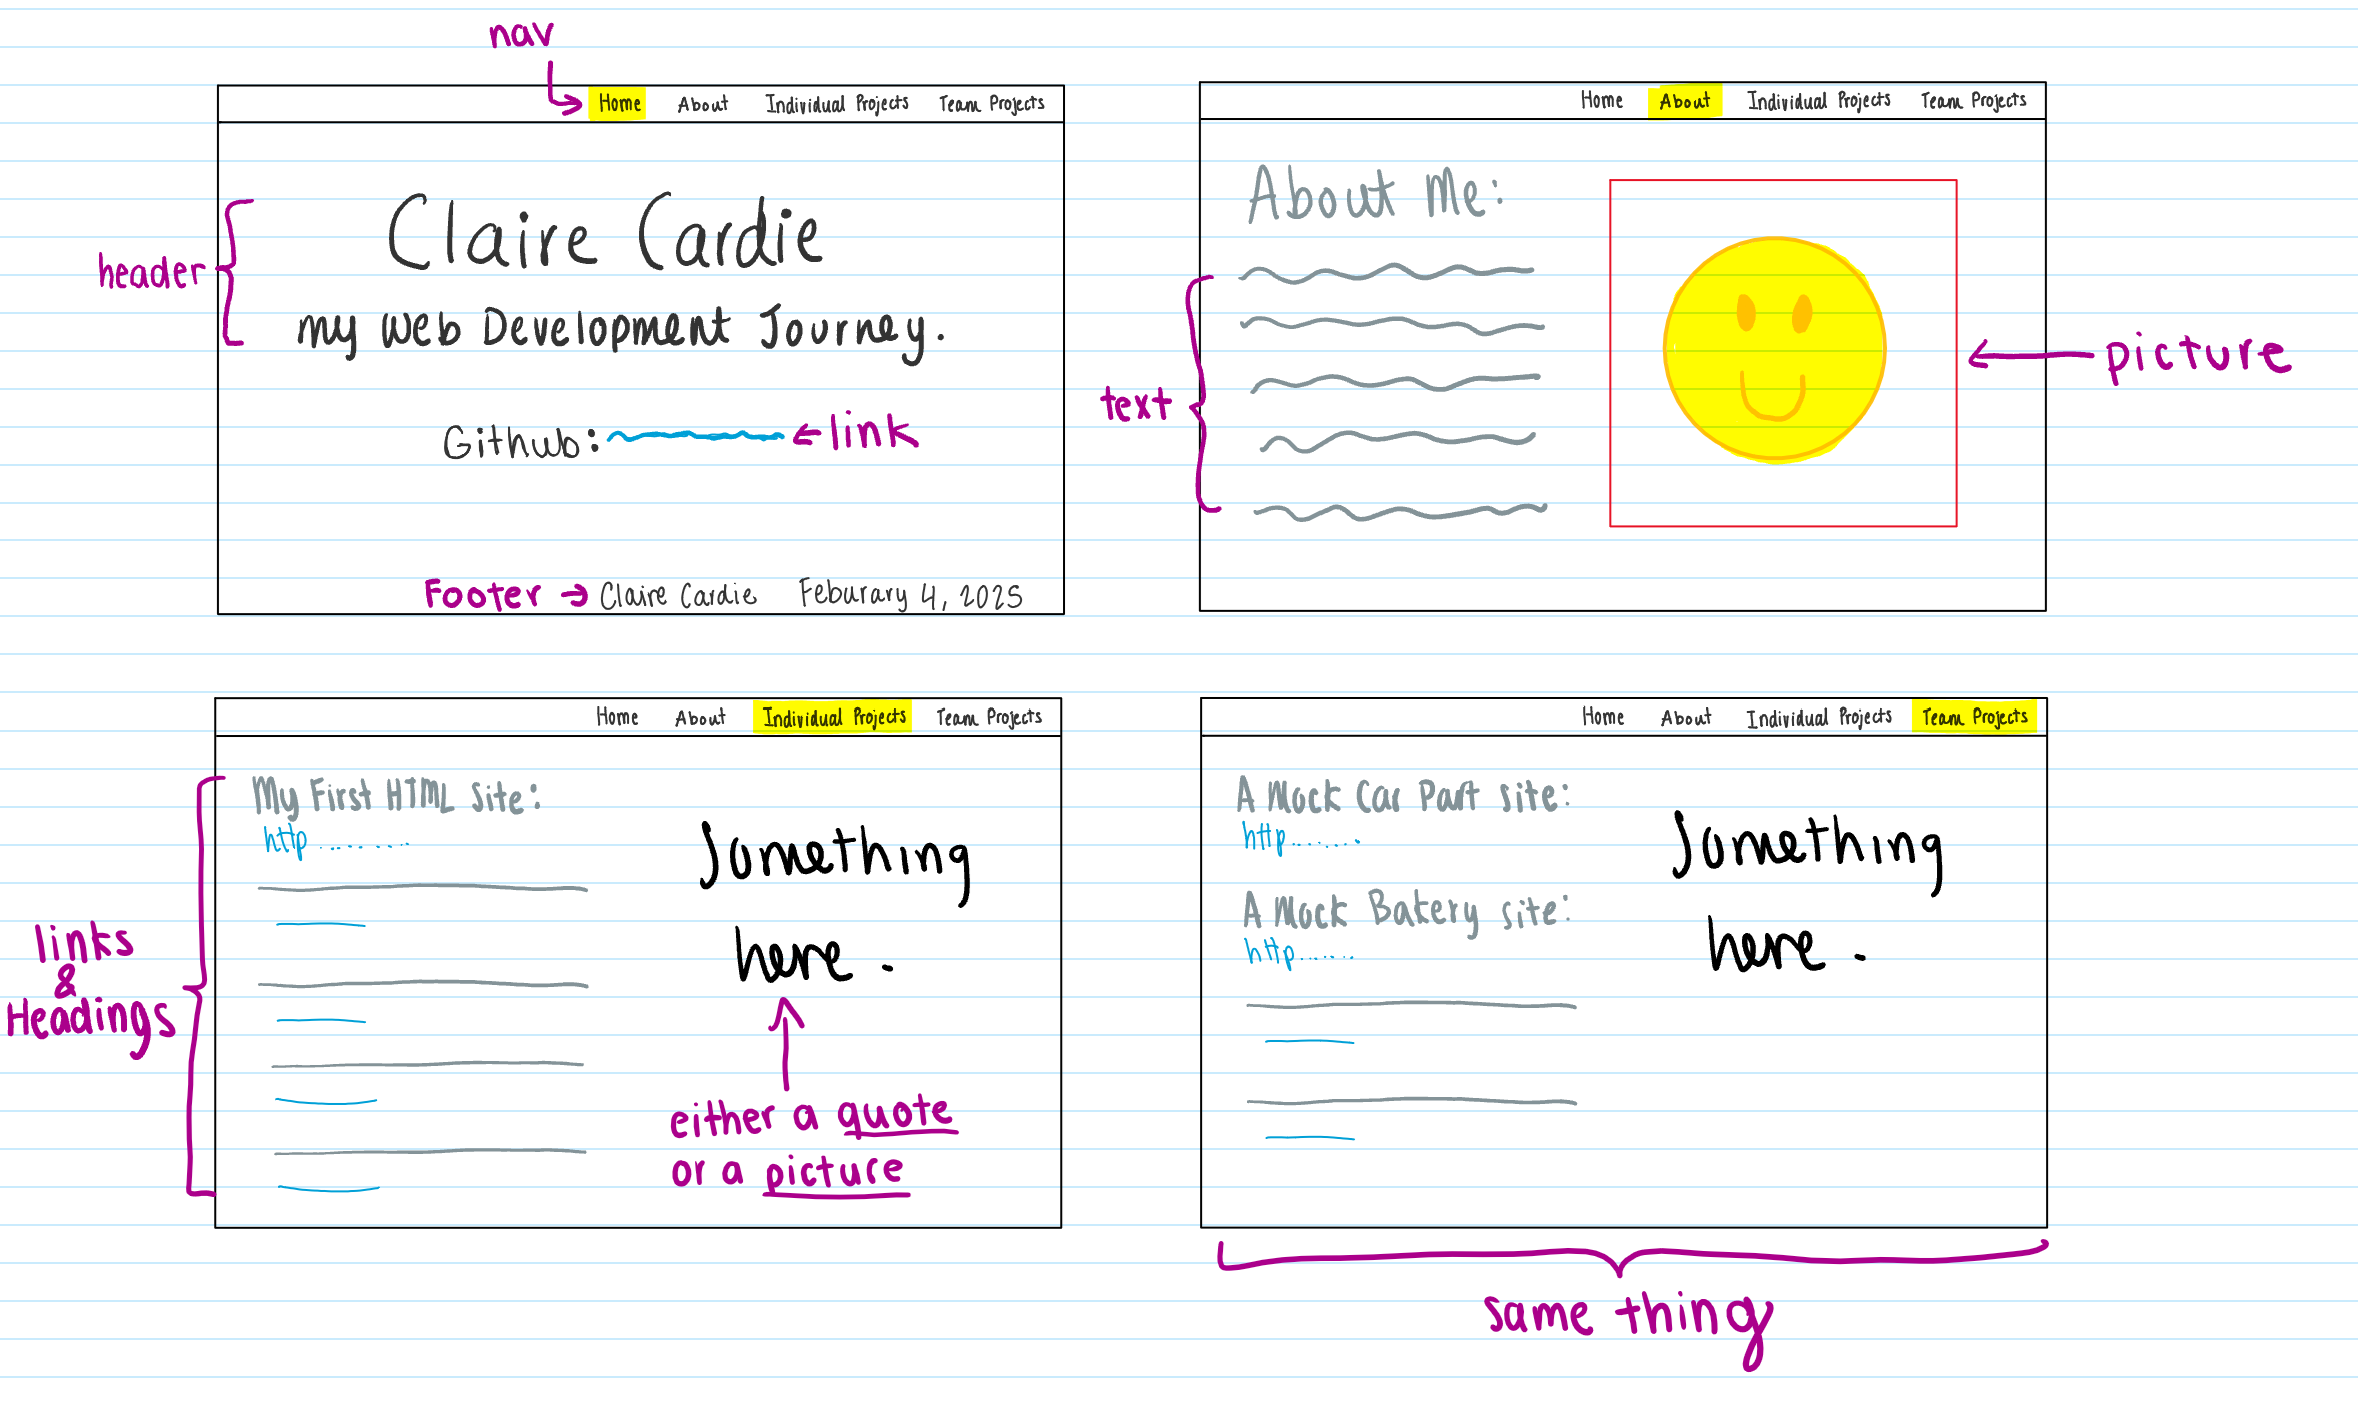 nav
Home About Individual Projects Team Projects
header
Claire Cardie
my Web Development Journey.
Github:
link
Footer → Claire Cardie Feburary 4, 2025
Home About Individual Projects Team Projects
About Me:
text
picture
Home About Individual Projects Team Projects
links
&
Headings
My First HTML site:
http..........
Something
here.
either a quote
or a picture
Home About Individual Projects Team Projects
A Mock Car Part site:
http.......
A Mock Bakery site:
http......
Something
here.
same thing